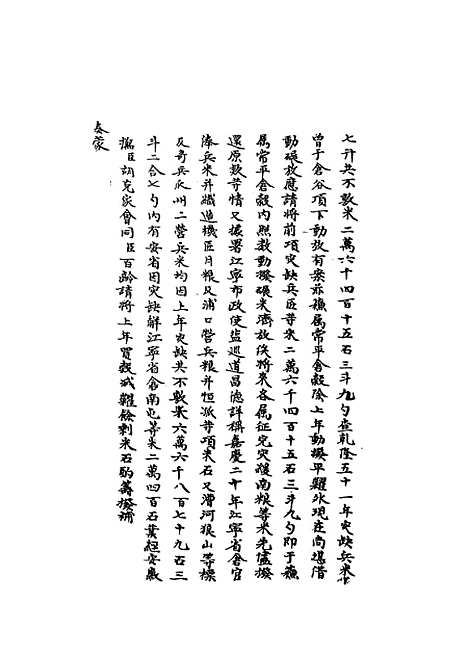 七升共不敷米二萬六千四百十五石三斗九勺查乾隆五十一年灾缺兵米
曾于倉谷項下動放有案蘇屬常平倉穀除上年動撥平糶外現在尚堪借
動碾放應請將前項灾缺兵匠等米二萬六千四百十五石三斗九勺即于蘇
屬常平倉穀內照數動撥碾米濟放俟將來各屬征完灾緩南糧等米先儘撥
還原款等情又據署江寧布政使監巡道昌德詳稱嘉慶二十年江寧省倉官
俸兵米并織造機匠口糧及浦口營兵糧并恒派等項米石又漕河狼山等標
及奇兵瓜州二營兵米均因上年灾缺共不敷米六萬六千八百七十九石三
斗二合七勺內有安省因灾缺解江寧省倉南屯等米二萬四百石業經安徽
撫臣胡克家會同臣百齡請將上年買穀減糶餘剩米石酌籌撥補
奏蒙